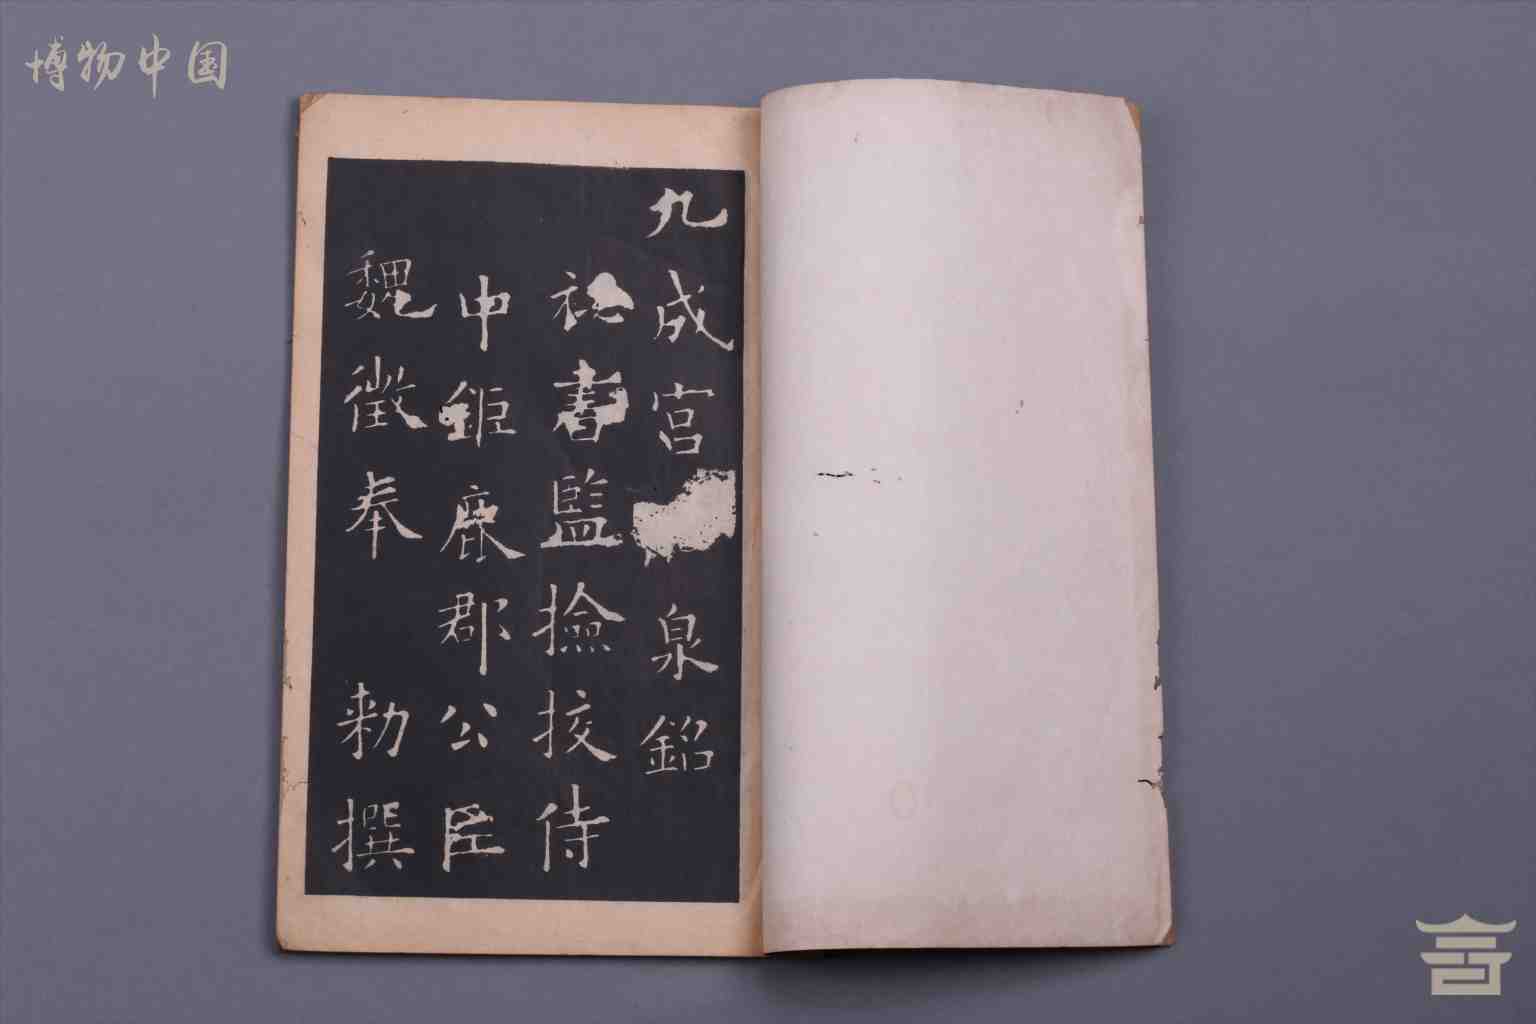 博物中国
九成宮泉銘
祕書監撿挍侍
中鉅鹿郡公臣
魏徵奉
勑撰